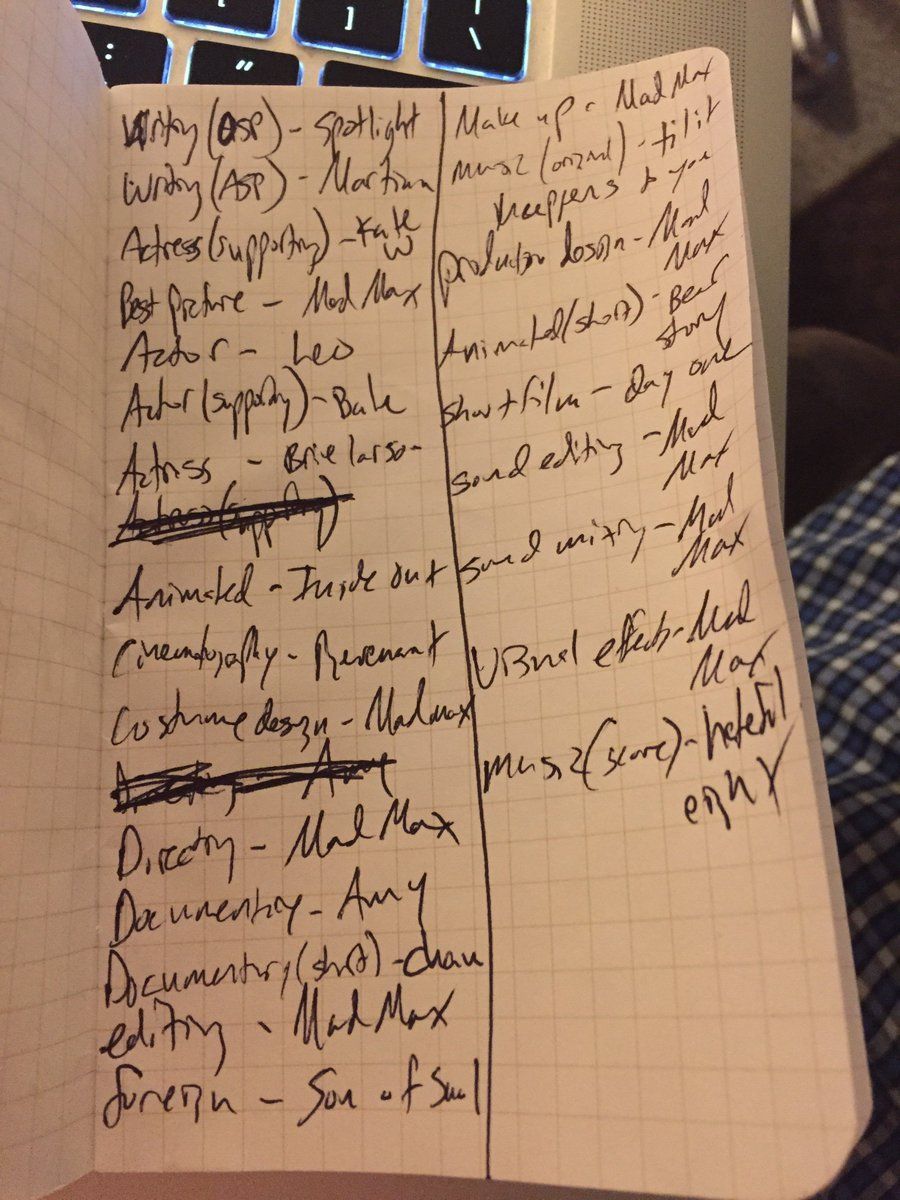 Writing (OSP) - Spotlight
Writing (ASP) - Martian
Actress (supporting) - Kate
W
Best picture - Mad Max
Actor - Leo
Actor (supporting) - Bale
Actress - Brie larson
Actress (supporting)
Animated - Inside out
Cinematography - Revenant
Costume design - Mad max
Amy
Directing - Mad Max
Documentary - Amy
Documentary (short) - chau
editing - Mad Max
foreign - Son of Saul
Make up - Mad Max
music (original) - til it
happens to you
production design - Mad
Max
Animated (short) - Bear
story
short film - day one
sound editing - Mad
Max
sound mixing - Mad
Max
Visual effects - Mad
Max
music (score) - hateful
eight
"
\